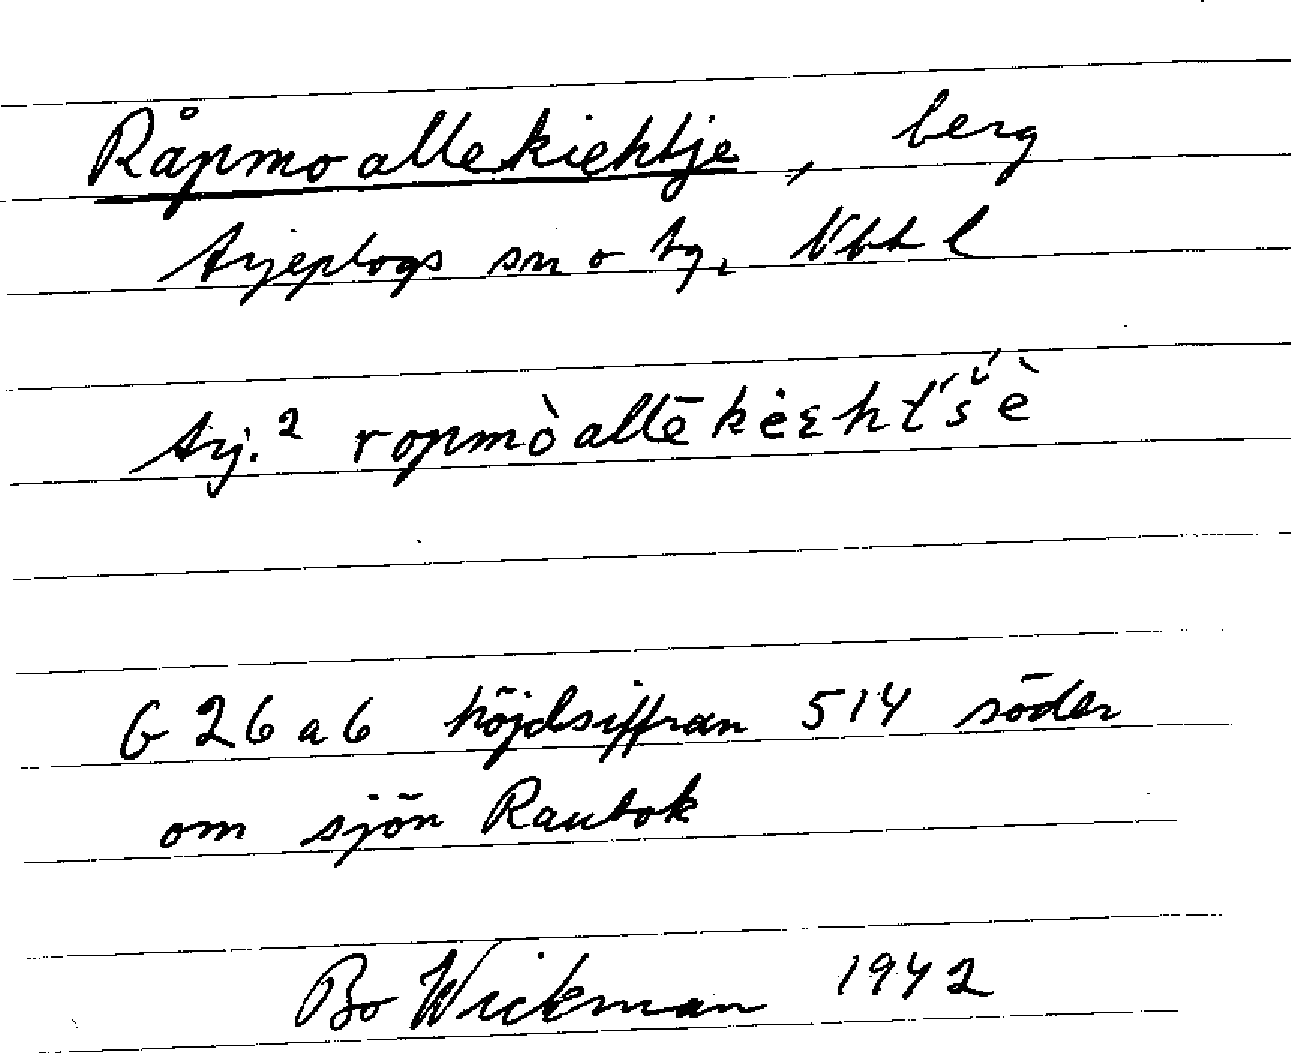 Råpmoallekiehtje, berg
Arjeplogs sn o tg, Nbt l
Arj.² ropmòallē
G 26 a 6 höjdsiffran 514 söder
om sjön Rautok
Bo Wickman 1942